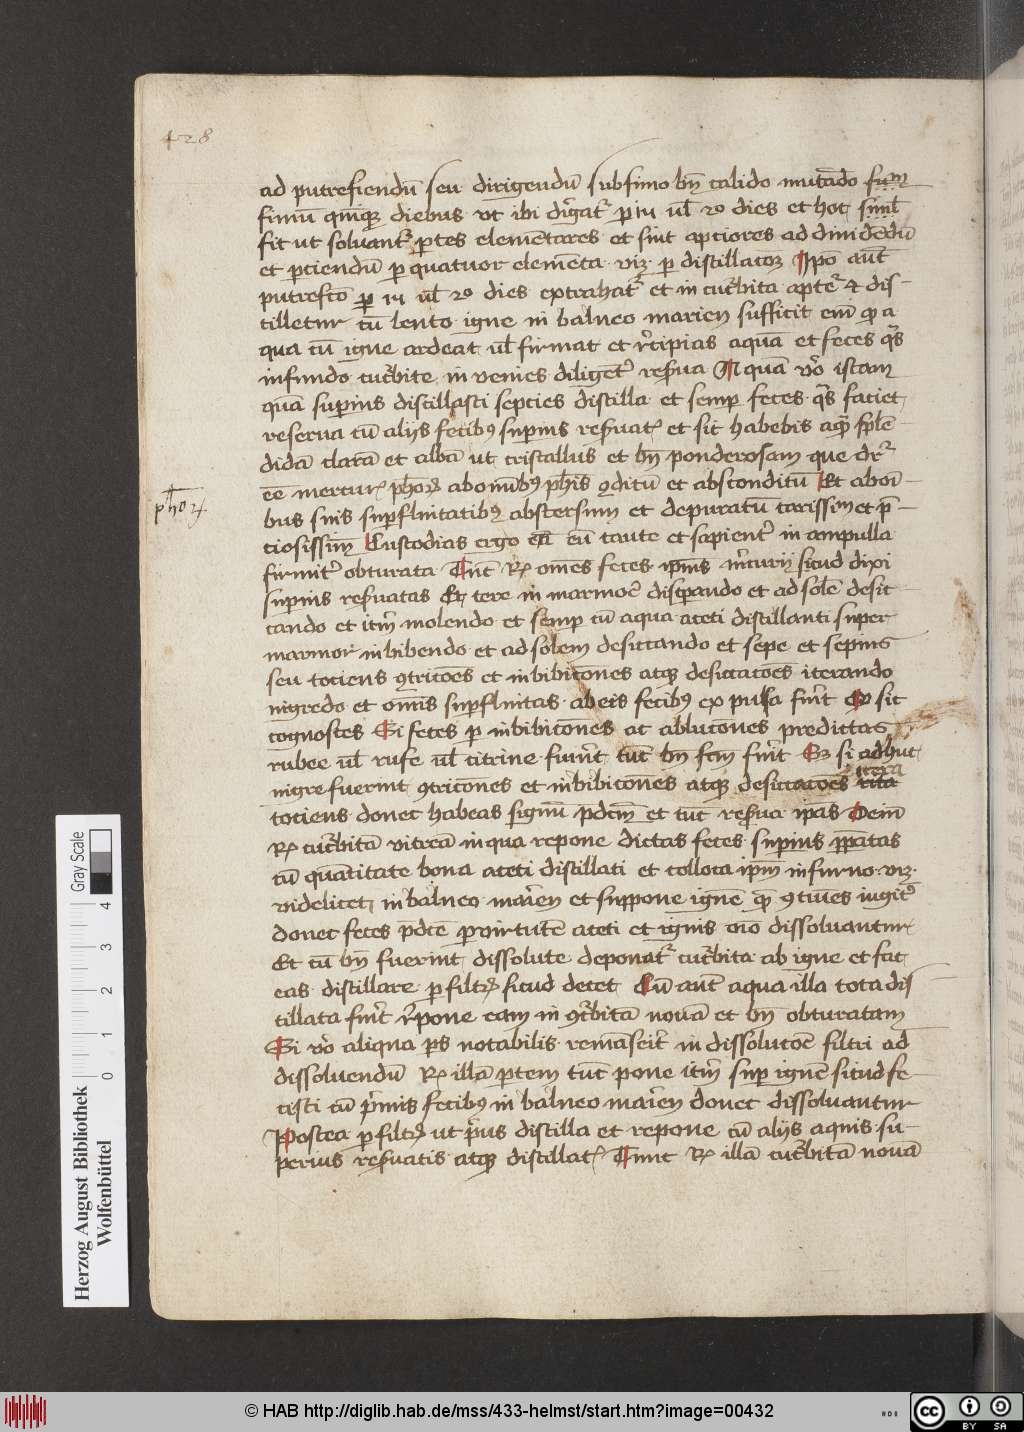 428
ad putrefiendū seu dirigendū subfimo bn̄ calido mutādo
fimū diebus ut ibi p iu ul̄ 20 dies et hoc
fit ut soluantr̄ ptes elemētares et sint aptiores ad
et pciendū p quatuor elemēta viz p
p iu ul̄ 20 dies extrahatr̄ et in cucr̄bita aptēr et dis-
tilletur cū lento igne in balneo marien sufficit em̄ a
qua cū igne ardeat ul̄ firmat et rēcipias aquā et feces qs̄
infundo cucr̄bite in venies diligētr̄ resr̄ua quā vō istam
quā superius distillasti septies distilla et semp feces qs̄ faciet
reserua cū alijs fecibus superius resr̄uat et sic habebis aqā splē-
didā clarā et albā ut cristallus et bn̄ ponderosam que dr̄
phor
ēē mercur ab omībus ph̄is ꝯditū et absconditū Et ab oī-
bus suis supfluitatibus abstersum et depuratū carissim et p̄-
ciosissim̄ Custodias ergo eū caute et sapientr̄ in ampulla
firmitr̄ obturata Tūc Rx om̄es feces ipi̅us m̄curij sicud dixi
superius resr̄uatas Et tere in marmor̄e et ad solē desic-
cando et itm̄ molendo et semp cū aqua aceti distillanti super
marmor̄ inbibendo et ad solem desiccando et sepe et sepius
seu tociens ꝯtricōes et inbibicōnes atqꝫ desiccacōes iterando
nigredo et om̄is supfluitas ab eis fecibus ex pulsa fuīt Et sic
cognosces Si feces p inbibicōnes ac ablucōnes predictas
rubee ul̄ rufe ul̄ citrine fuīnt tūc bn̄ fcm̄ fuīt si adhuc
nigre fuerint ꝯtricōnes et inbibicōnes atqꝫ desiccacōes itera
tociens donec habeas signū pdcm̄ et tūc resr̄ua ipas Deīn
Rx cucr̄bitā vitreā in qua repone dictas feces superius ppātas
cū quātitate bona aceti distillati et colloca ipm̄ in furno viz
videlicet in balneo marien et suppone ignē ꝯtinēs iugitr̄
donec feces pdcē p virtutē aceti et ignis oīo dissoluantur
Et cū bn̄ fuerint dissolute deponatr̄ cucr̄bita ab igne et fac
eas distillare p filtr sicud decet Cū aūt aqua illa tota dis
tillata fuīt rēpone eam in cucr̄bitā nouā et bn̄ obturatam
Si vō aliqua ps notabilis remāserit in dissolucōe filtri ad
dissoluendū Rx illā ptem tūc pone itm̄ sup ignē sicud fe-
cisti cū p̄mis fecibus in balneo marien donec dissoluantur
Postea p filtr ut p̄us distilla et repone cū alijs aquis su-
perius resr̄uatis atqꝫ distillat Tunc Rx illā cucr̄bitā nouā
Gray Scale
0 1 2 3 4
Herzog August Bibliothek
Wolfenbüttel
© HAB http://diglib.hab.de/mss/433-helmst/start.htm?image=00432
CC BY SA